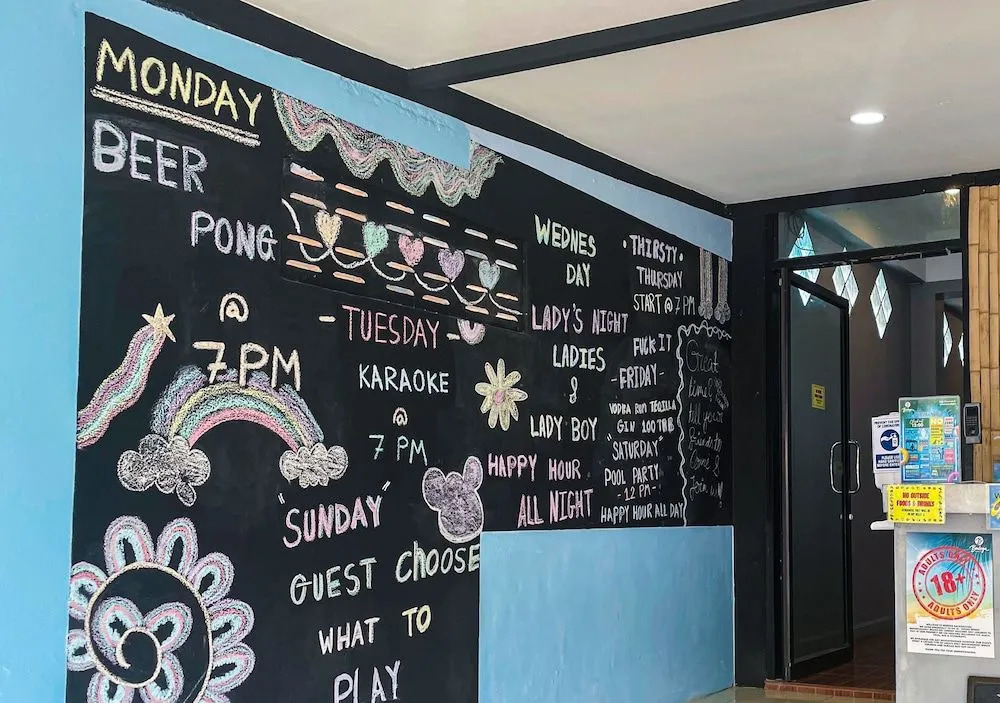 MONDAY
BEER
PONG
@
7PM
- TUESDAY -
KARAOKE
@
7 PM
"SUNDAY"
GUEST CHOOSE
WHAT TO
PLAY
WEDNES
DAY
LADY'S NIGHT
LADIES
&
LADY BOY
HAPPY HOUR
ALL NIGHT
• THIRSTY •
THURSDAY
START @ 7 PM
FUCK IT
- FRIDAY -
VODKA RUM TEQUILA
GIN 100 THB
"SATURDAY"
POOL PARTY
- 12 PM -
HAPPY HOUR ALL DAY
Great
time!
tell your
friends to
Come &
Join us!
NO OUTSIDE
FOODS & DRINKS
ADULTS ONLY
18+
ADULTS ONLY